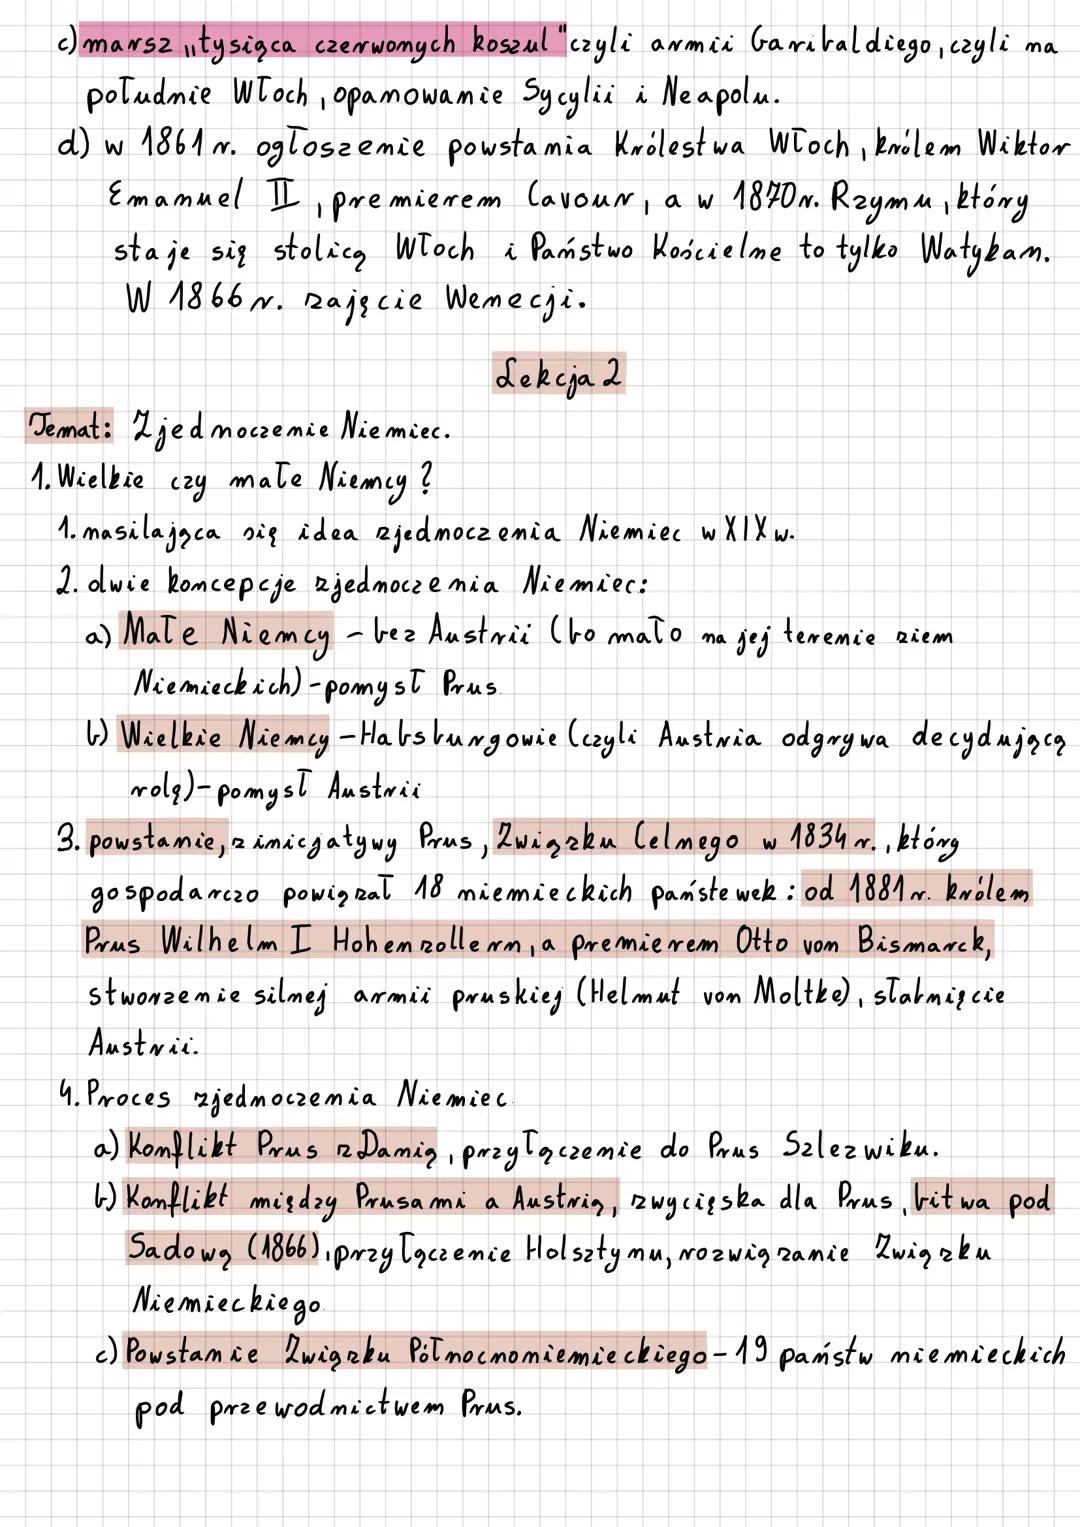 c) marsz „tysiąca czerwonych koszul" czyli armii Garibaldiego, czyli na
południe Włoch, opanowanie Sycylii i Neapolu.
d) w 1861 r. ogłoszenie powstania Królestwa Włoch, królem Wiktor
Emanuel II, premierem Cavour, a w 1870r. Rzymu, który
staje się stolicą Włoch i Państwo Kościelne to tylko Watykan.
W 1866 r. zajęcie Wenecji.
Lekcja 2
Temat: Zjednoczenie Niemiec.
1. Wielkie czy małe Niemcy?
1. nasilająca się idea zjednoczenia Niemiec w XIX w.
2. dwie koncepcje zjednoczenia Niemiec:
a) Małe Niemcy - bez Austrii (bo mało na jej terenie ziem
Niemieckich) - pomysł Prus.
b) Wielkie Niemcy - Habsburgowie (czyli Austria odgrywa decydującą
rolę) - pomysł Austrii
3. powstanie, z inicjatywy Prus, Związku Celnego w 1834 r., który
gospodarczo powiązał 18 niemieckich państewek: od 1881 r. królem
Prus Wilhelm I Hohenzollern, a premierem Otto von Bismarck,
stworzenie silnej armii pruskiej (Helmut von Moltke), słabnięcie
Austrii.
4. Proces zjednoczenia Niemiec.
a) Konflikt Prus z Danią, przyłączenie do Prus Szlezwiku.
b) Konflikt między Prusami a Austrią, zwycięska dla Prus, bitwa pod
Sadową (1866), przyłączenie Holsztynu, rozwiązanie Związku
Niemieckiego.
c) Powstanie Związku Północnoniemieckiego - 19 państw niemieckich
pod przewodnictwem Prus.